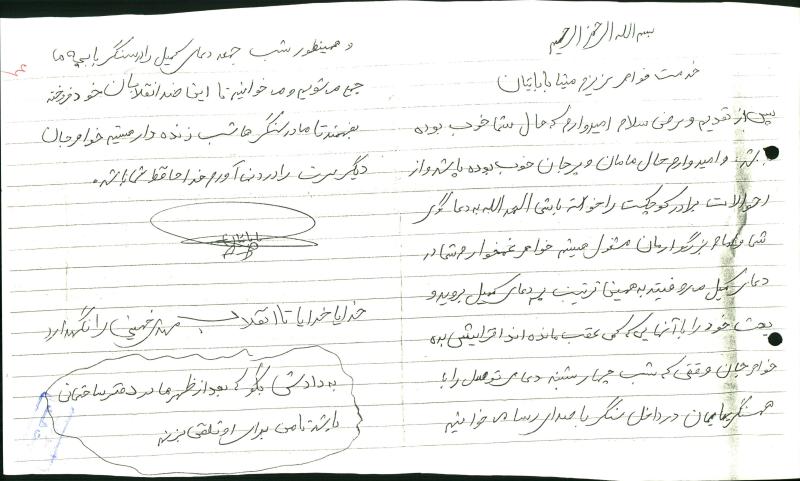 بسم الله الرحمن الرحیم
خدمت خواهر عزیزم مینا بابائیان
پس از تقدیم و عرض سلام امیدوارم که حال شما خوب بوده
باشد. و امیدوارم حال مامان و پرجان خوب بوده باشد و از
احوالات برادر کوچکت را خواسته باشی الحمدالله به دعاگوی
شما و امام بزرگوارمان مشغول میشه خواهر غمخوارم شما در
دعای کمیل میرفتید به همین ترتیب به دعای کمیل بروید و
بحث خود را با آنهایی که کمی عقب مانده اند افزایش بده
خواهر جان وقتی که شب چهارشنبه دعای توصل را با
همسنگریهایمان در داخل سنگر با صدای رسا می خوانیم
و همینطور شب جمعه دعای کمیل را در سنگر با بچه ها
جمع می شویم و می خوانیم تا این ضد انقلابان خود فروخته
بفهمند تا ما در سنگرها شب زنده دار میشیم خواهر جان
دیگر سرت را درد نمی آورم خدا حافظ شما باشد.
خدایا خدایا تا انقلاب مهدی خمینی را نگهدار
به داداشی بگو که بعد از ظهرها در دفتر ساختمان
باشد تا من برای او تلفن بزنم